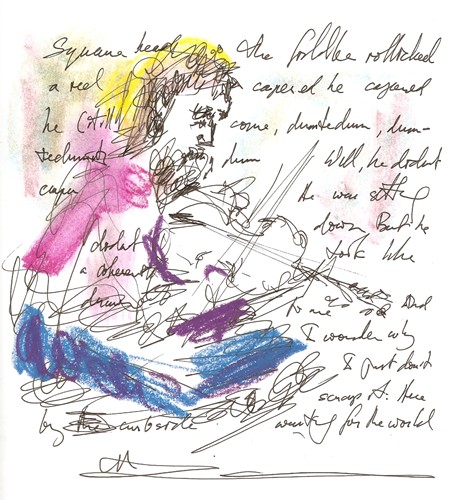 Square head the rollicked
a reel capered he capered
he come, dumtedum, dum-
dum Well, he didnt
caper He was sitting
down. But he
didnt look like
a coherent
drawing to me And
I wonder why
I just dont
scrap it. Here
by the curbside waiting for the world